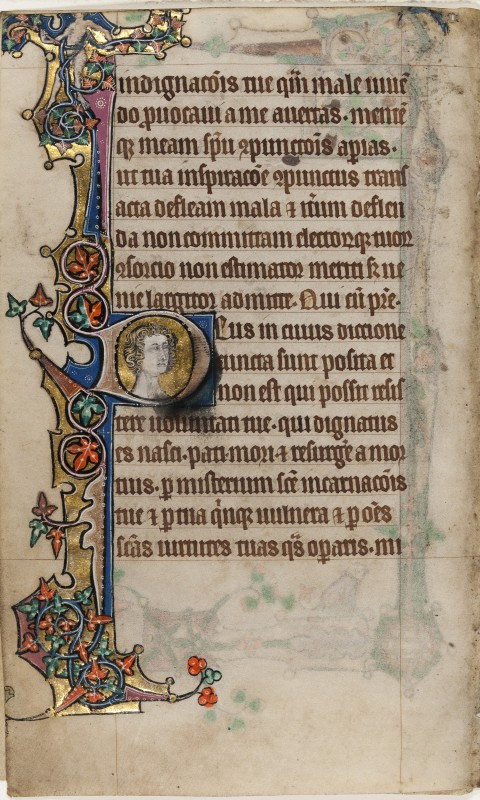 indignacōis tue qm̄ male uiuē
do ꝓuocaui a me auertas · mentē
qꝫ meam sp̄u ꝯpunctōis aꝑias ·
ut tua inspiracōe ꝯpunctus trans
acta defleam mala ⁊ itm̄ deflen
da non committam electorꝝqꝫ tuoꝝ
ꝯsorcio non estimator meriti sꝫ ue
nie largitor admitte · Qui cū p̄re ·
Deus in cuius diccione
cuncta sunt posita et
non est qui possit resis
tere uoluntati tue · qui dignatus
es nasci · pati · mori · ⁊ resurgē a mor
tuis · ꝑ misterium scē incarnacōis
tue ⁊ ꝑ tua qinqꝫ uulnera ⁊ ꝑ oēs
scās uirtutes tuas qs̄ oꝑaris · mi